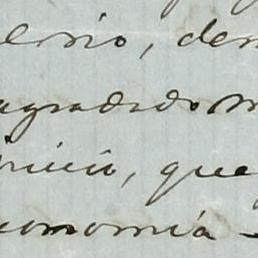 erio, den
agradado m
inicio, que
conomia -